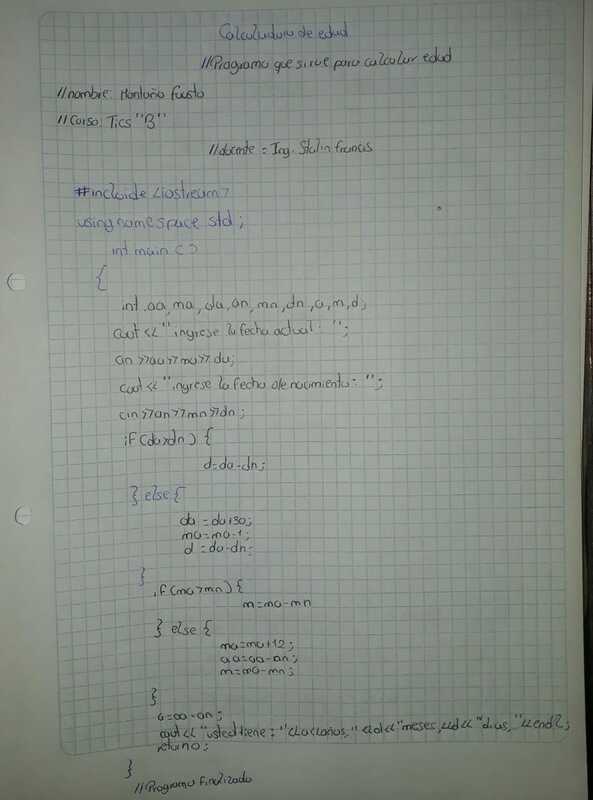 Calculadora de edad
//Programa que sirve para calcular edad
//nombre: Montaño Fausto
//Curso: Tics "B"
//docente = Ing. Stalin francis
#include <iostream>
using namespace std;
int main ( )
{
int aa, ma, da, an, mn, dn, a, m, d;
cout << "ingrese la fecha actual: ";
cin >>aa>>ma>> da;
cout << "ingrese la fecha de nacimiento: ";
cin >>an>>mn>>dn;
if (da>dn) {
d=da-dn;
} else {
da = da+30;
ma = ma-1;
d = da-dn;
}
if (ma>mn) {
m=ma-mn
} else {
ma=ma+12;
aa=aa-an;
m=ma-mn;
}
a=aa-an;
cout << "usted tiene: "<<a<<años," <<d<<"meses,<<d<<"dias,"<<endl;
return 0;
}
//Programa finalizado